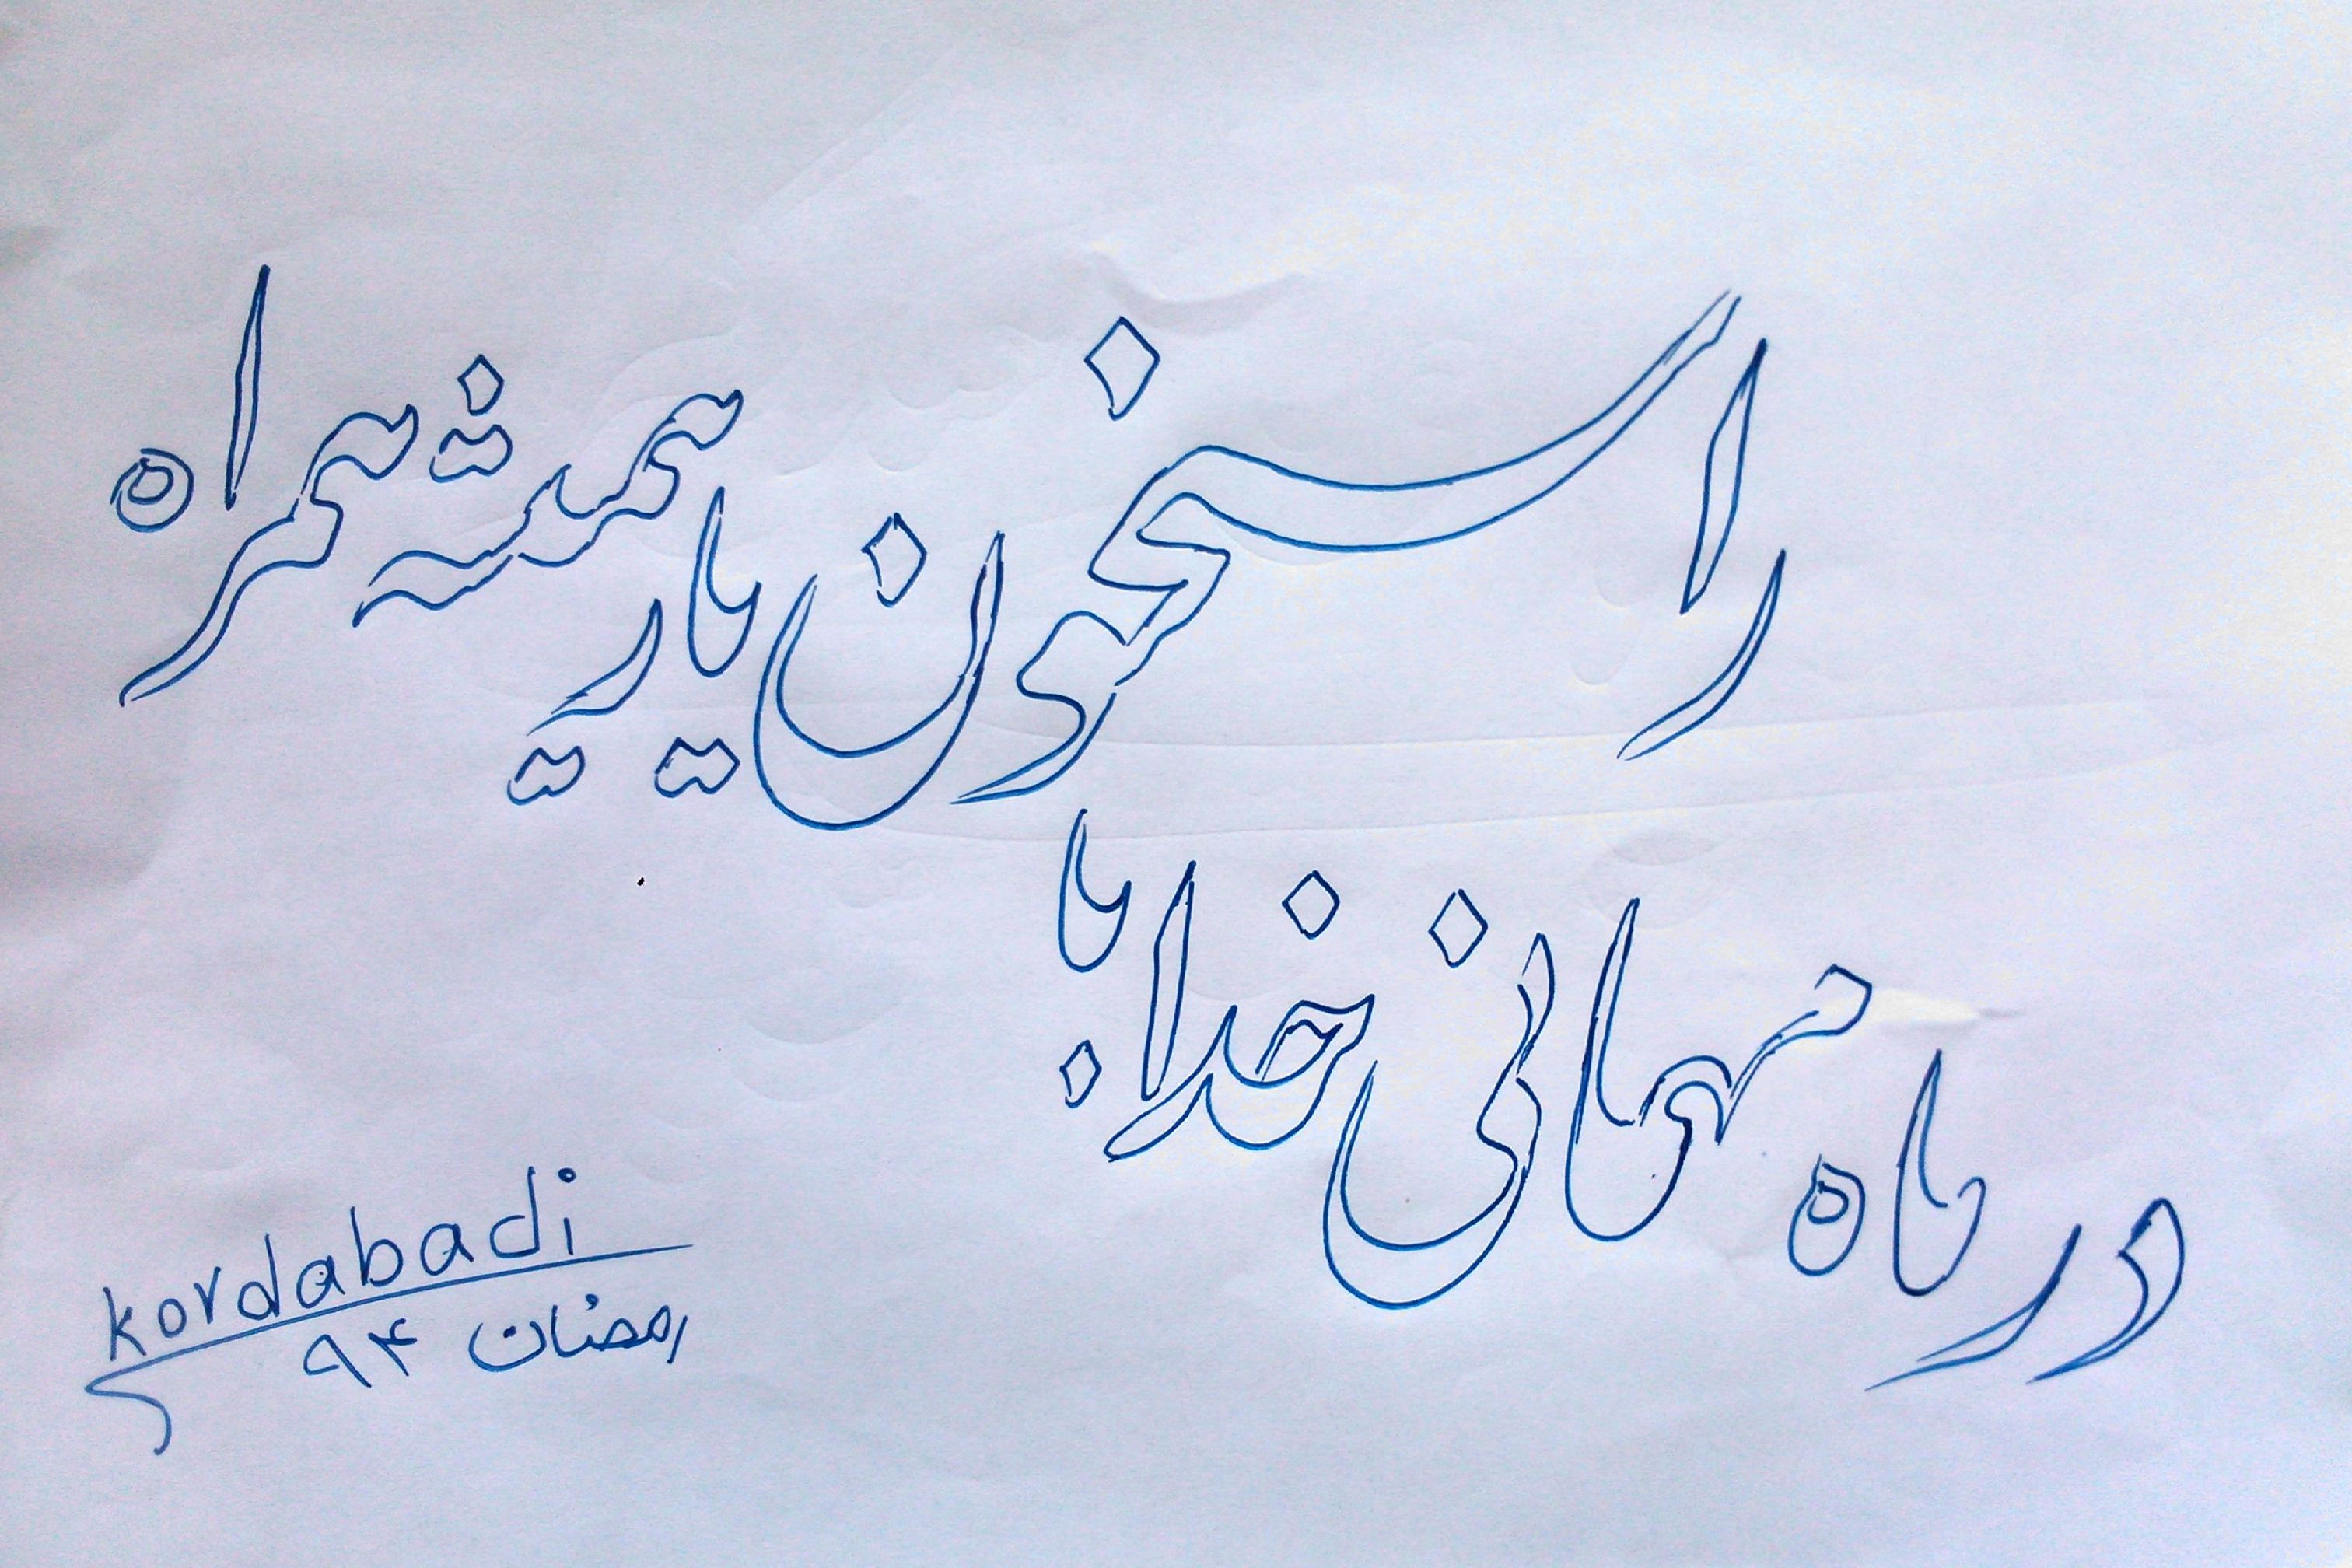 راسخون یار همیشه همراه
در ماه مهمانی خدا با
kordabadi
رمضان ۹۴